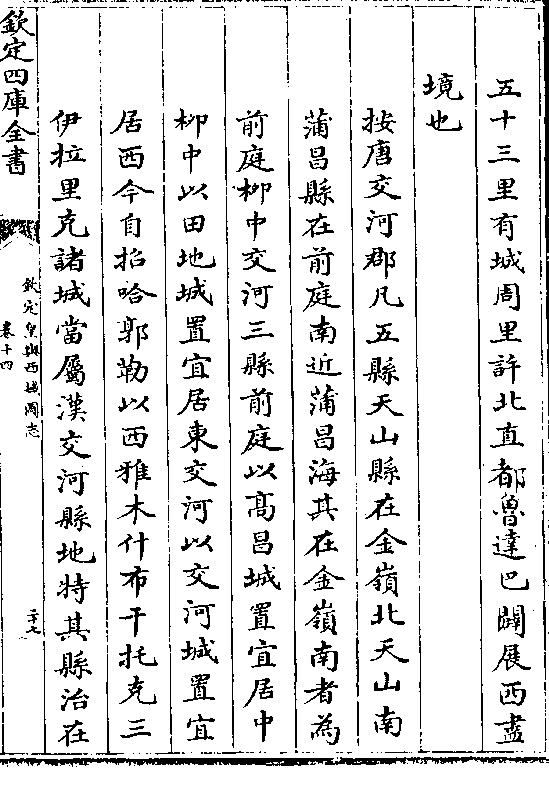 五十三里有城周里許北直都魯達巴闢展西盡
境也
按唐交河郡凡五縣天山縣在金嶺北天山南
蒲昌縣在前庭南近蒲昌海其在金嶺南者為
前庭柳中交河三縣前庭以高昌城置宜居中
柳中以田地城置宜居東交河以交河城置宜
居西今自招哈郭勒以西雅木什布干托克三
伊拉里克諸城當屬漢交河縣地特其縣治在
欽定四庫全書
欽定皇輿西域圖志
卷十四
二十七